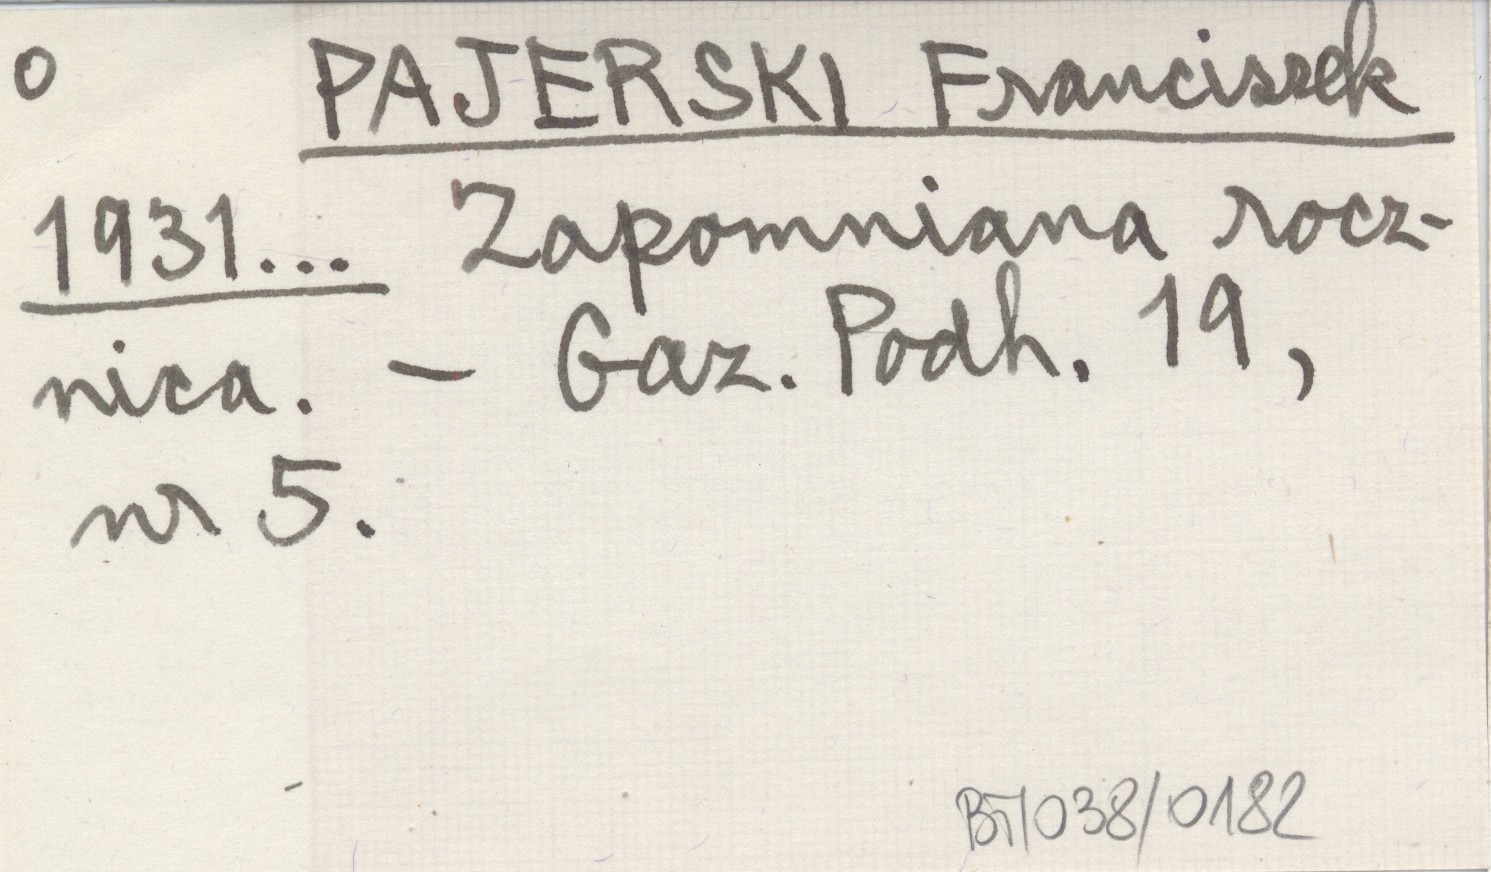 o PAJERSKI Franciszek
1931... Zapomniana rocz-
nica. – Gaz. Podh. 19,
nr 5.
BJ/038/0182